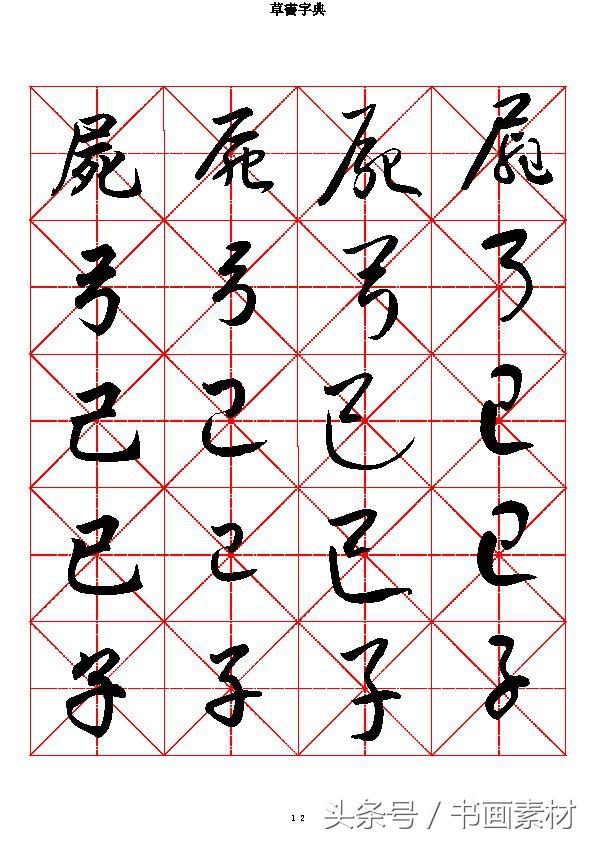 草書字典
屍 屍 屍 屍
弓 弓 弓 弓
己 己 己 己
已 已 已 已
子 子 子 子
12
头条号 / 书画素材